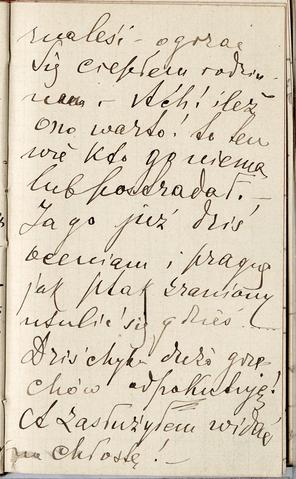 znaleść - ogrzać
się ciepłem rodzin-
nem - Ach! ileż
ono warto! to ten
wie kto go niema
lub postradał. -
Ja go już dziś
oceniam i pragnę
jak ptak zraniony
utulić się gdzieś -
Dziś chyba dużo grze-
chów odpokutuję!
A zasłużyłem widać
na chłostę! -